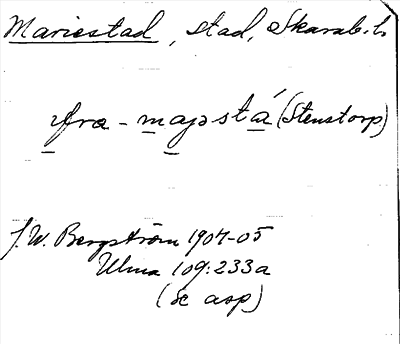 Mariestad, stad, Skarab. l.
yfra - majəstá (Stenstorp)
J. W. Bergström 1904-05
Ulma 109:233a
(se asp)